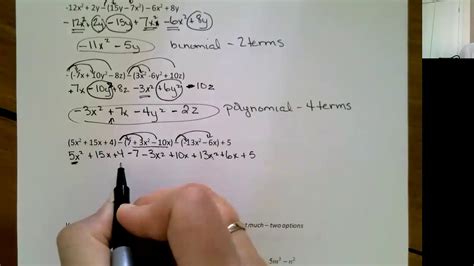 -12x² + 2y -(15y - 7x²) - 6x² + 8y
-12x² + 2y - 15y + 7x² - 6x² + 8y
-11x² - 5y binomial - 2 terms
-(-7x + 10y² - 8z) - (3x² - 6y² + 10z)
+7x - 10y² + 8z - 3x² + 6y² - 10z
-3x² + 7x - 4y² - 2z polynomial - 4 terms
(5x² + 15x + 4) - (7 + 3x² - 10x) - (-13x² - 6x) + 5
5x² + 15x + 4 - 7 - 3x² + 10x + 13x² + 6x + 5
much - two options
5m³ - n²